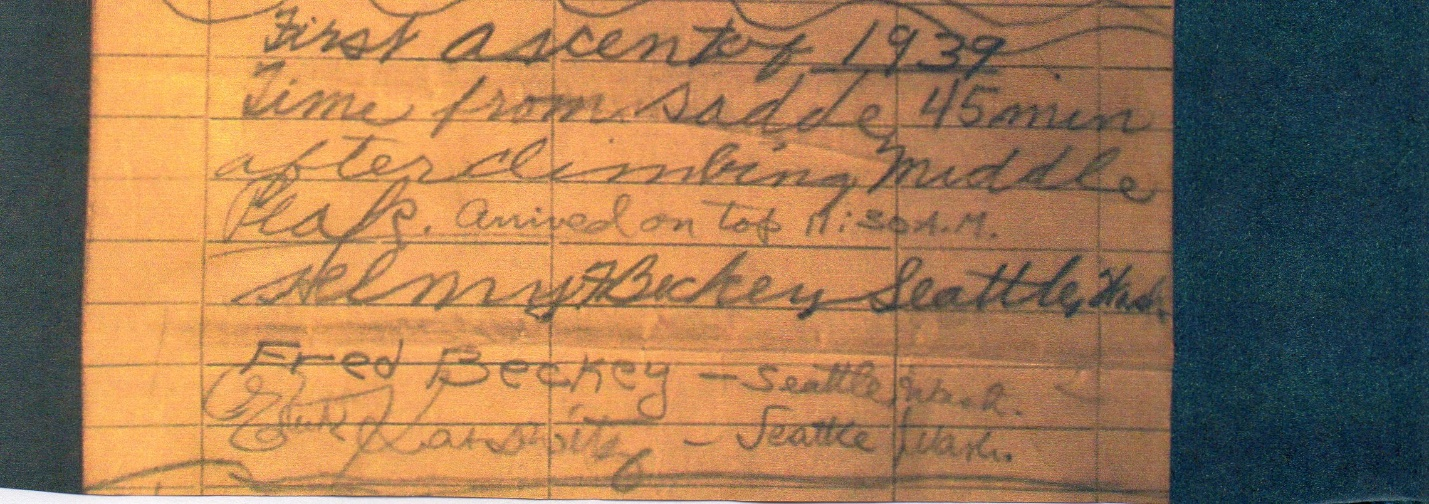 First ascent of 1939.
Time from saddle, 45 min
after climbing Middle
Peak. Arrived on top 11:30 A.M.
Helmy F Beckey Seattle, Wash.
Fred Beckey — Seattle, Wash.
Larswitz — Seattle, Wash.